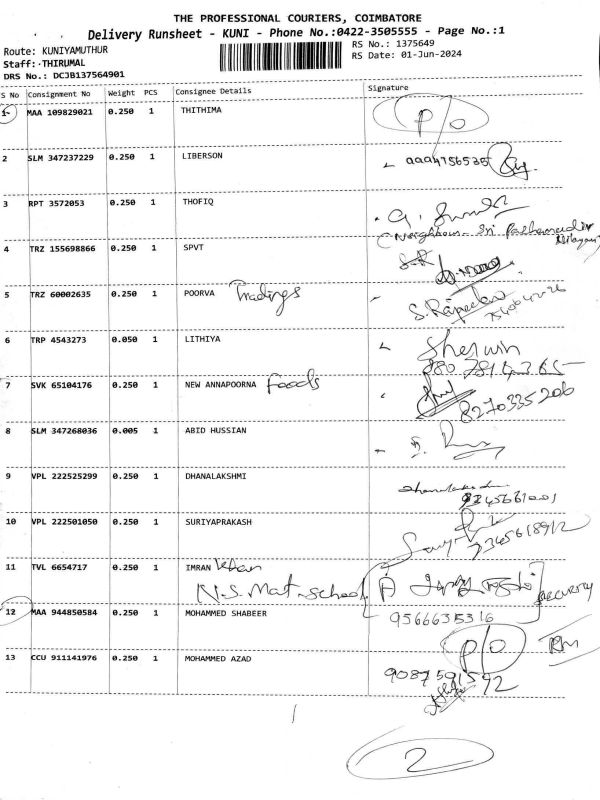 THE PROFESSIONAL COURIERS, COIMBATORE
Delivery Runsheet - KUNI - Phone No.:0422-3505555 - Page No.:1
Route: KUNIYAMUTHUR
RS No.: 1375649
Staff: THIRUMAL
RS Date: 01-Jun-2024
DRS No.: DCJB137564901
S No Consignment No Weight PCS Consignee Details Signature
1 MAA 109829021 0.250 1 THITHIMA P/O
2 SLM 347237229 0.250 1 LIBERSON
3 RPT 3572053 0.250 1 THOFIQ
4 TRZ 155698866 0.250 1 SPVT
5 TRZ 60002635 0.250 1 POORVA Tradings
6 TRP 4543273 0.050 1 LITHIYA Sherwin
7 SVK 65104176 0.250 1 NEW ANNAPOORNA Foods
8270335206
8 SLM 347268036 0.005 1 ABID HUSSIAN
9 VPL 222525299 0.250 1 DHANALAKSHMI
10 VPL 222501050 0.250 1 SURIYAPRAKASH
11 TVL 6654717 0.250 1 IMRAN khan
N.S. Mat. School security
9566635316
12 MAA 944850584 0.250 1 MOHAMMED SHABEER P/O
13 CCU 911141976 0.250 1 MOHAMMED AZAD
2